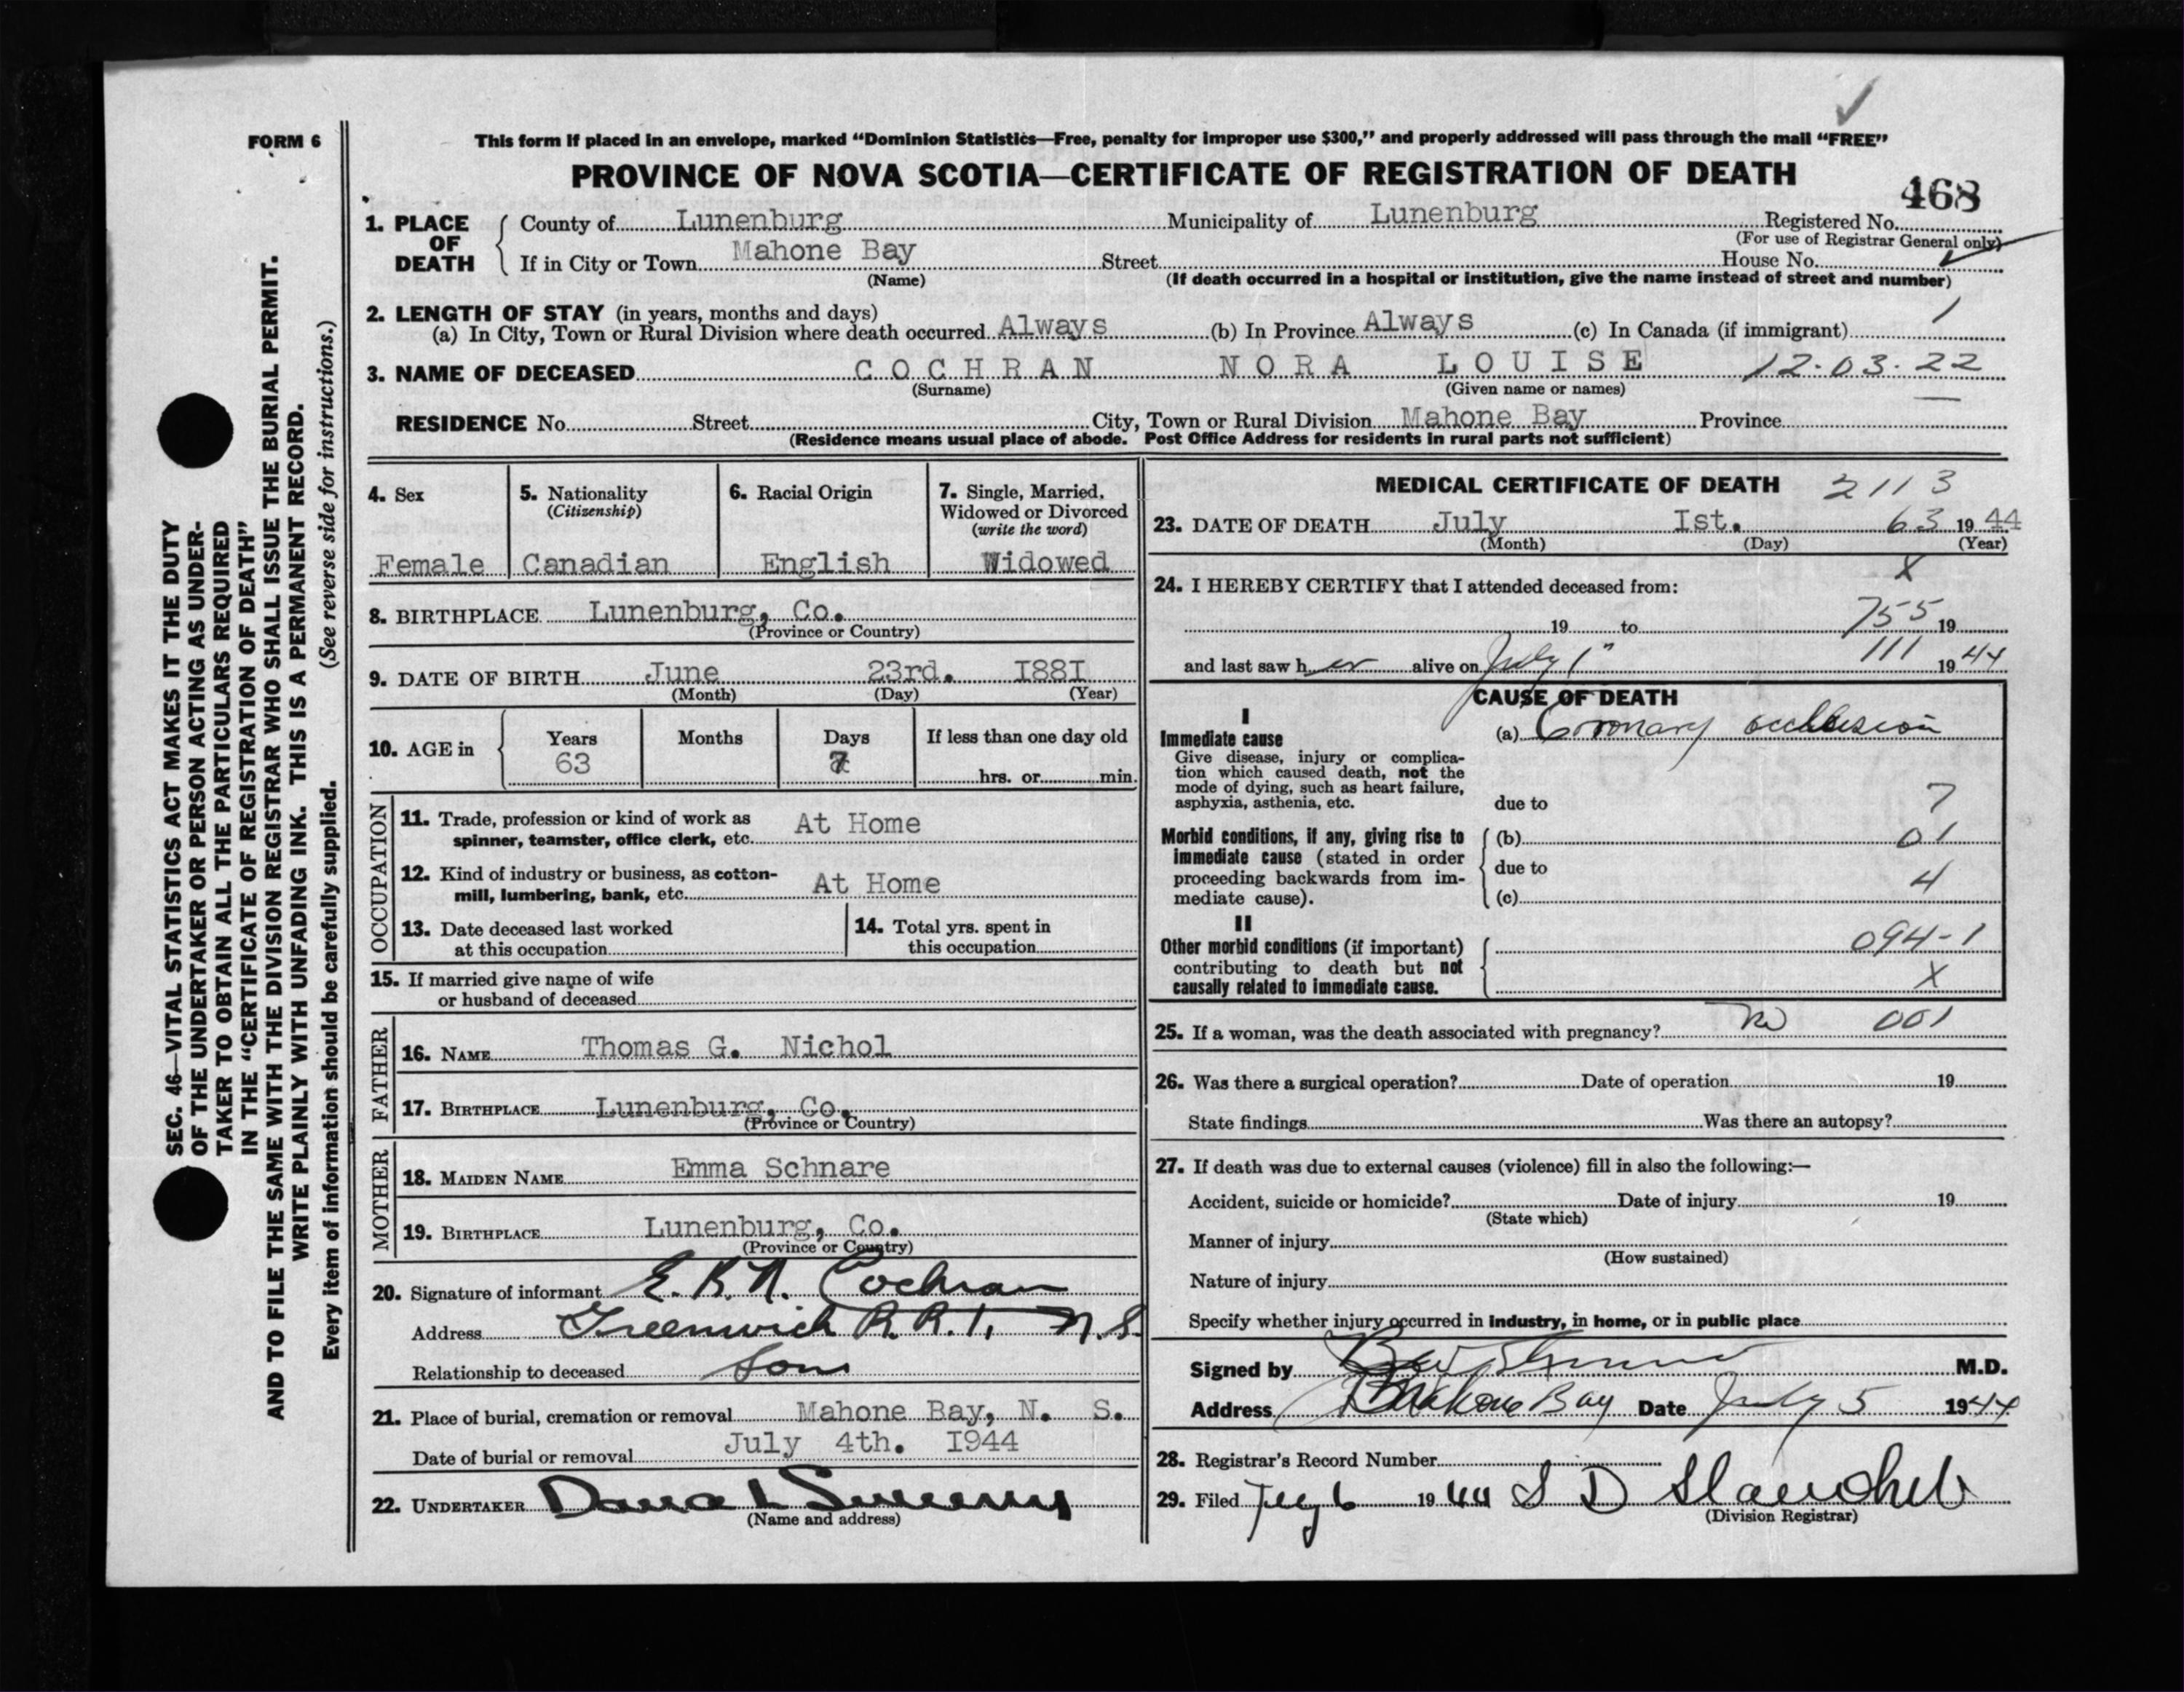 FORM 6
This form if placed in an envelope, marked “Dominion Statistics—Free, penalty for improper use $300,” and properly addressed will pass through the mail “FREE”
PROVINCE OF NOVA SCOTIA—CERTIFICATE OF REGISTRATION OF DEATH
468
1. PLACE OF DEATH County of Lunenburg Municipality of Lunenburg Registered No.
(For use of Registrar General only)
If in City or Town Mahone Bay Street House No.
(Name) (If death occurred in a hospital or institution, give the name instead of street and number)
2. LENGTH OF STAY (in years, months and days) 1
(a) In City, Town or Rural Division where death occurred Always (b) In Province Always (c) In Canada (if immigrant)
3. NAME OF DECEASED COCHRAN NORA LOUISE 12-03-22
(Surname) (Given name or names)
RESIDENCE No. Street City, Town or Rural Division Mahone Bay Province
(Residence means usual place of abode. Post Office Address for residents in rural parts not sufficient)
4. Sex 5. Nationality (Citizenship) 6. Racial Origin 7. Single, Married, Widowed or Divorced (write the word)
Female Canadian English Widowed
8. BIRTHPLACE Lunenburg, Co.
(Province or Country)
9. DATE OF BIRTH June 23rd. I88I
(Month) (Day) (Year)
10. AGE in Years Months Days If less than one day old
63 7 hrs. or min.
OCCUPATION
11. Trade, profession or kind of work as
spinner, teamster, office clerk, etc. At Home
12. Kind of industry or business, as cotton-
mill, lumbering, bank, etc. At Home
13. Date deceased last worked
at this occupation
14. Total yrs. spent in
this occupation
15. If married give name of wife
or husband of deceased
FATHER
16. NAME Thomas G. Nichol
17. BIRTHPLACE Lunenburg, Co.
(Province or Country)
MOTHER
18. MAIDEN NAME Emma Schnare
19. BIRTHPLACE Lunenburg, Co.
(Province or Country)
20. Signature of informant E. Cochran
Address Greenwich R. R. 1, N.S.
Relationship to deceased Son
21. Place of burial, cremation or removal Mahone Bay, N. S.
Date of burial or removal July 4th. I944
22. UNDERTAKER
(Name and address)
MEDICAL CERTIFICATE OF DEATH 2113
23. DATE OF DEATH July Ist. 63 19 44
(Month) (Day) (Year)
X
24. I HEREBY CERTIFY that I attended deceased from:
19 to 755 19
and last saw her alive on July 1" 111 19 44
CAUSE OF DEATH
I
Immediate cause (a) Coronary occlusion
Give disease, injury or complica-
tion which caused death, not the
mode of dying, such as heart failure,
asphyxia, asthenia, etc. due to 7
Morbid conditions, if any, giving rise to (b) 01
immediate cause (stated in order
proceeding backwards from im- due to 4
mediate cause). (c)
II
Other morbid conditions (if important) 094-1
contributing to death but not
causally related to immediate cause. X
25. If a woman, was the death associated with pregnancy? No 001
26. Was there a surgical operation? Date of operation 19
State findings Was there an autopsy?
27. If death was due to external causes (violence) fill in also the following:—
Accident, suicide or homicide? Date of injury 19
(State which)
Manner of injury
(How sustained)
Nature of injury
Specify whether injury occurred in industry, in home, or in public place
Signed by M.D.
Address Mahone Bay Date July 5 1944
28. Registrar's Record Number
29. Filed 19 44 S D
(Division Registrar)
SEC. 46—VITAL STATISTICS ACT MAKES IT THE DUTY
OF THE UNDERTAKER OR PERSON ACTING AS UNDER-
TAKER TO OBTAIN ALL THE PARTICULARS REQUIRED
IN THE “CERTIFICATE OF REGISTRATION OF DEATH”
AND TO FILE THE SAME WITH THE DIVISION REGISTRAR WHO SHALL ISSUE THE BURIAL PERMIT.
WRITE PLAINLY WITH UNFADING INK. THIS IS A PERMANENT RECORD.
Every item of information should be carefully supplied. (See reverse side for instructions.)